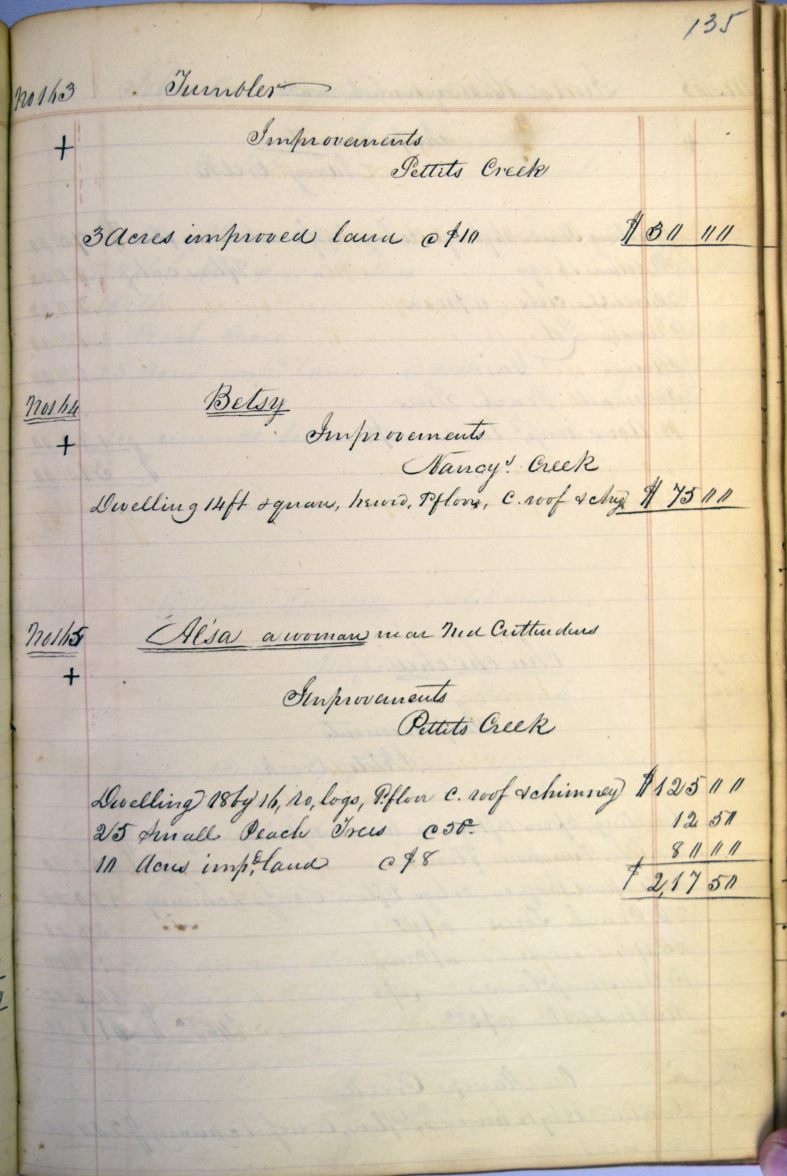 135
No 163 Tumbler
+ Improvements
Pettits Creek
3 Acres improved land @ $10 $30 00
No 164 Betsy
+ Improvements
Nancys Creek
Dwelling 14ft square, hewd, P.floor, C. roof & chy $75 00
No 165 Alsa a woman near Ned Crittendens
+ Improvements
Pettits Creek
Dwelling 18 by 16, ro, logs, P.floor C. roof & chimney $125 00
25 Small Peach Trees @ 50c 12 50
10 Acres impd land @ $8 80 00
$2,17 50